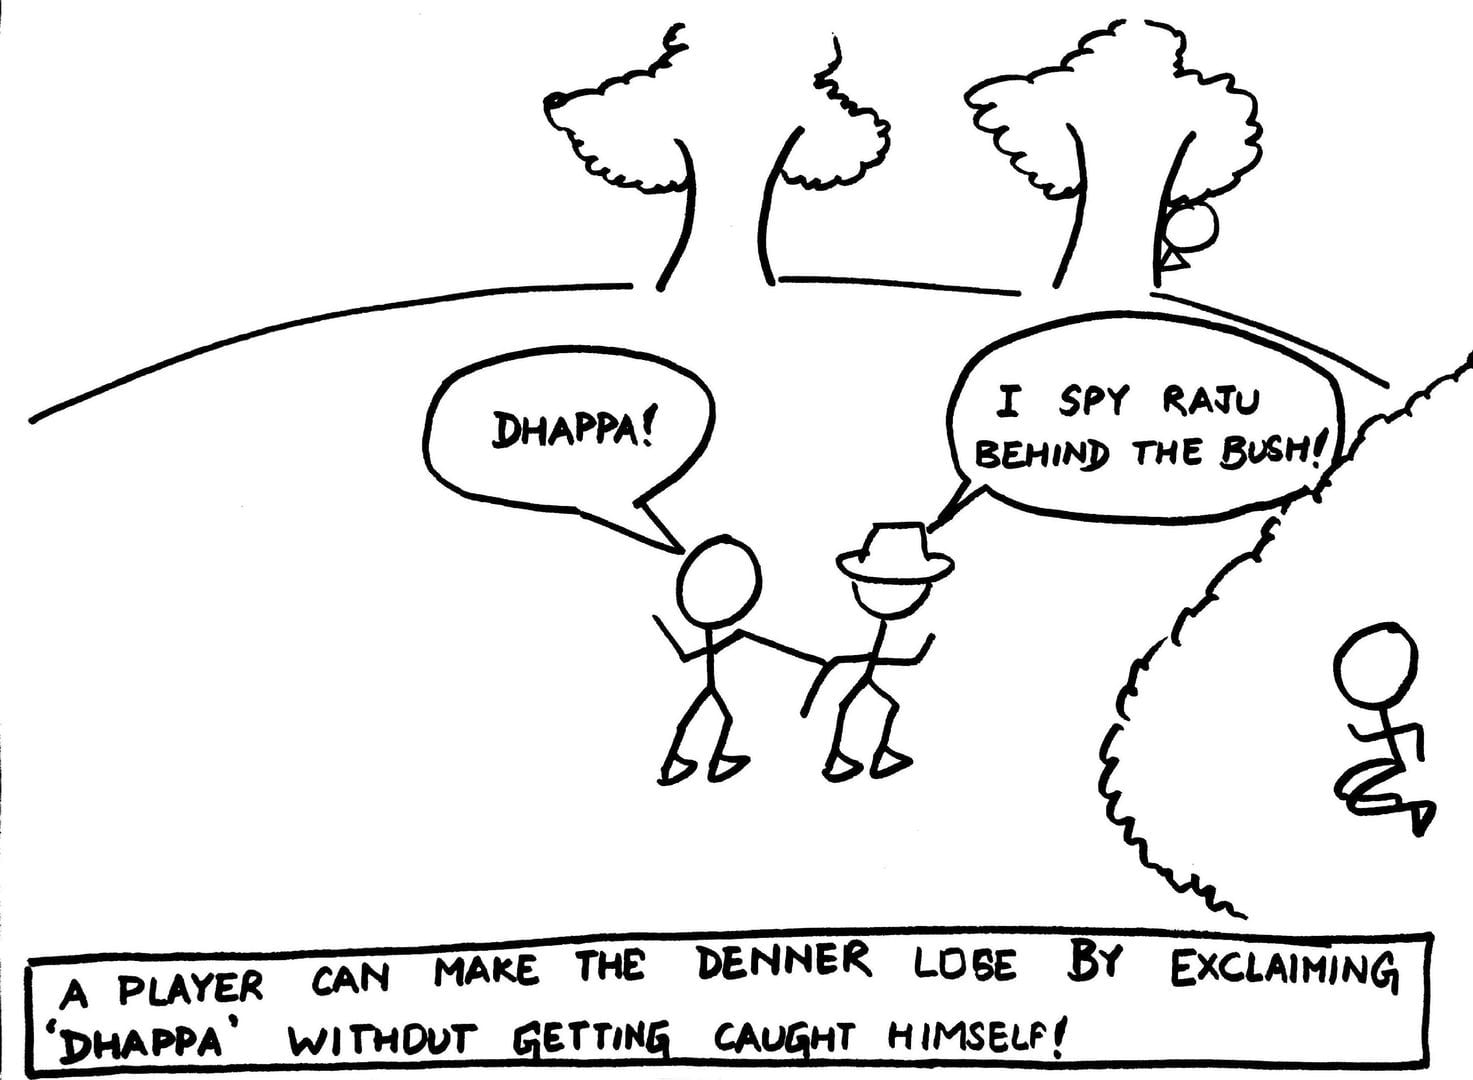 DHAPPA!
I SPY RAJU
BEHIND THE BUSH!
A PLAYER CAN MAKE THE DENNER LOSE BY EXCLAIMING
'DHAPPA' WITHOUT GETTING CAUGHT HIMSELF!